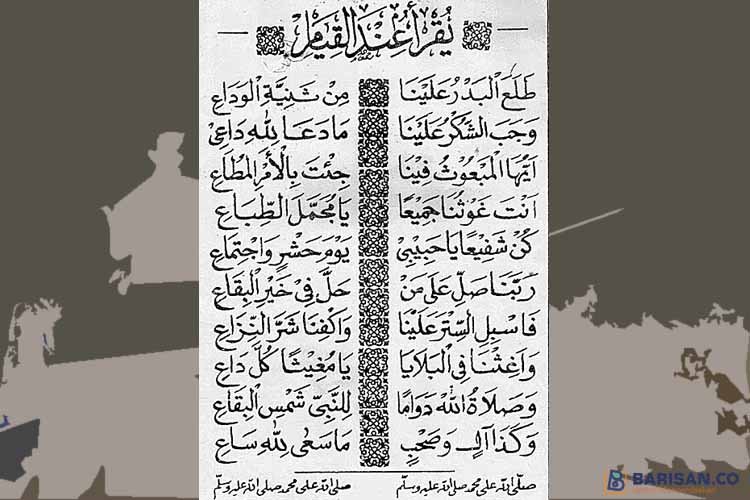 يُقْرَأُ عِنْدَ الْقِيَامِ
طَلَعَ الْبَدْرُ عَلَيْنَا مِنْ ثَنِيَّةِ الْوَدَاعِ
وَجَبَ الشُّكْرُ عَلَيْنَا مَا دَعَا لِلّٰهِ دَاعِيْ
اَيُّهَا الْمَبْعُوْثُ فِيْنَا جِئْتَ بِالْأَمْرِ الْمُطَاعِ
اَنْتَ غَوْثُنَا جَمِيْعًا يَا مُجَمَّلَ الطِّبَاعِ
كُنْ شَفِيْعًا يَا حَبِيْبِيْ يَوْمَ حَشْرٍ وَاجْتِمَاعِ
رَبَّنَا صَلِّ عَلَى مَنْ حَلَّ فِيْ خَيْرِ الْبِقَاعِ
فَاسْبِلِ السِّتْرَ عَلَيْنَا وَاكْفِنَا شَرَّ النِّزَاعِ
وَاَغِثْنَا فِي الْبَلَايَا يَا مُغِيْثًا كُلَّ دَاعِ
وَصَلَاةُ اللّٰهِ دَوَامًا لِلنَّبِيِّ شَمْسِ الْبِقَاعِ
وَكَذَا آلٍ وَصَحْبٍ مَا سَعٰى لِلّٰهِ سَاعِ
صلّى الله على محمد صلى الله عليه وسلّم صلى الله على محمد صلى الله عليه وسلّم
BARISAN.CO